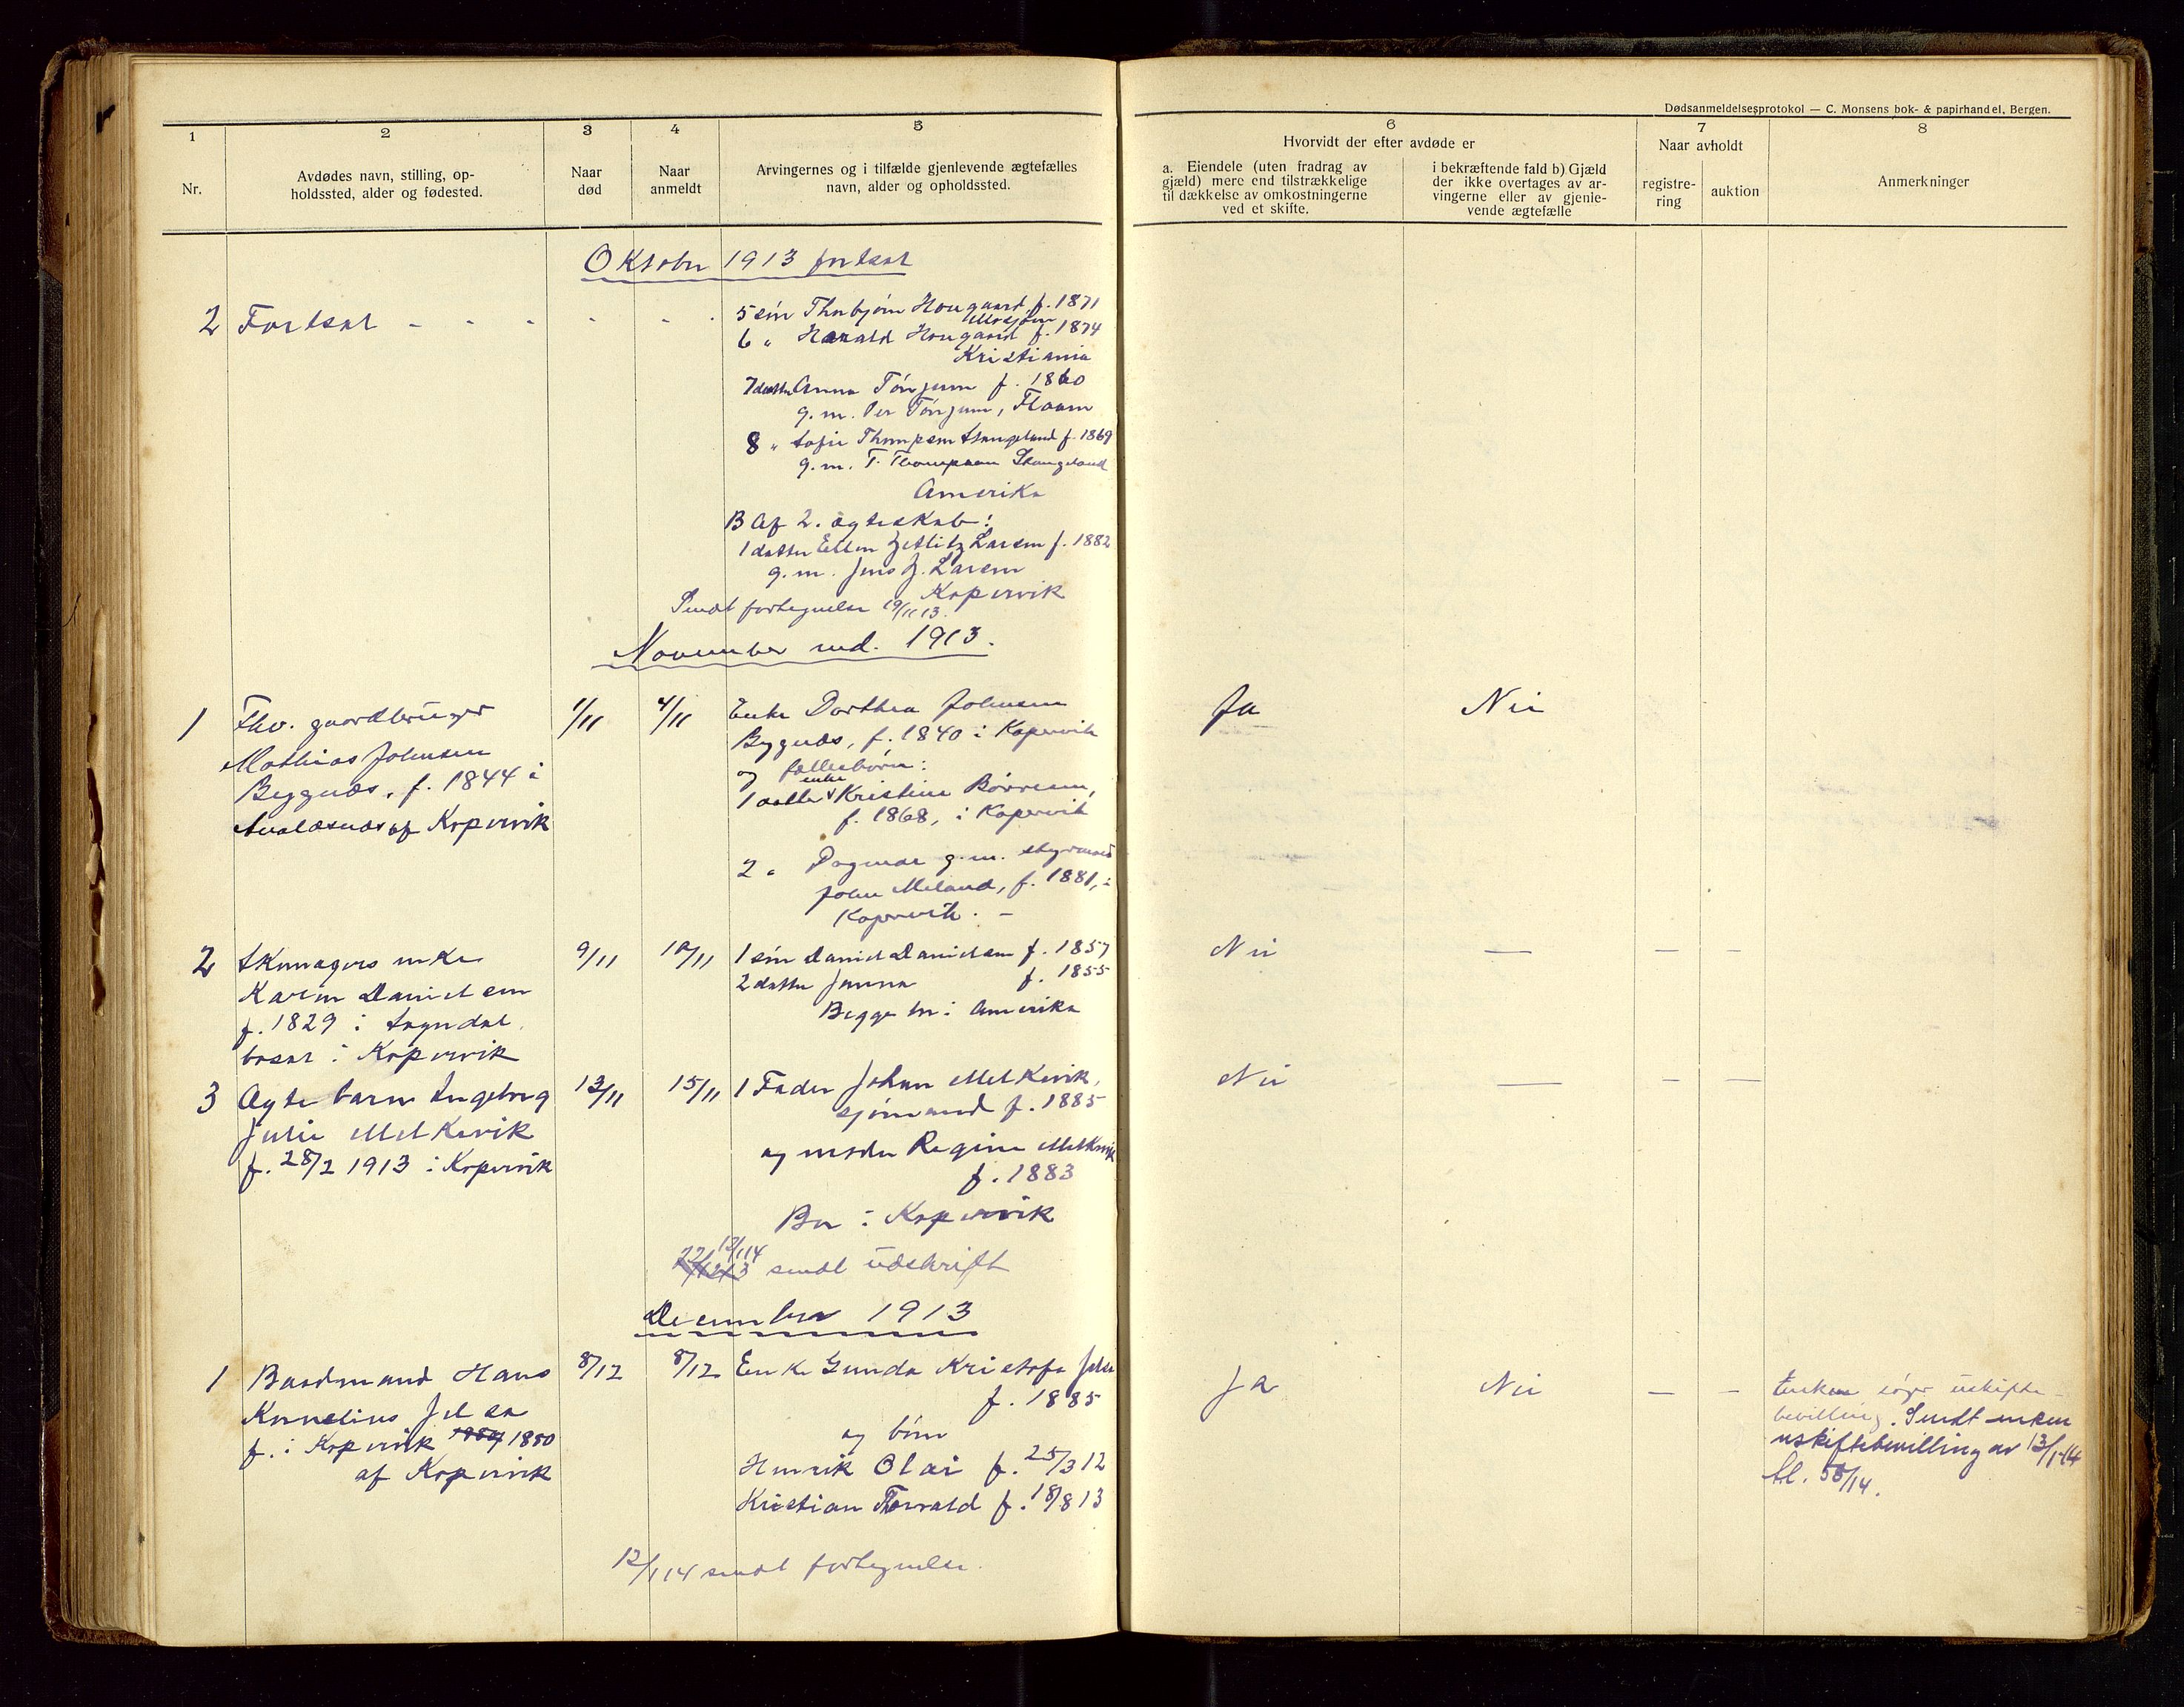 Dødsanmeldelsesprotokol — C. Monsens bok- & papirhandel, Bergen.
1
2
3
4
5
6
7
8
Nr.
Avdødes navn, stilling, op-
holdssted, alder og fødested.
Naar
død
Naar
anmeldt
Arvingernes og i tilfælde gjenlevende ægtefælles
navn, alder og opholdssted.
Hvorvidt der efter avdøde er
a. Eiendele (uten fradrag av
gjæld) mere end tilstrækkelige
til dækkelse av omkostningerne
ved et skifte.
i bekræftende fald b) Gjæld
der ikke overtages av ar-
vingerne eller av gjenle-
vende ægtefælle
Naar avholdt
registre-
ring
auktion
Anmerkninger
Oktober 1913 fortsat
2 Fortsat - - - - - -
5 sön Thorbjörn Hougaard f. 1871
Mosjöen
6 " Harald Hougaard f. 1874
Kristiania
7 datter Anna Tönjum f. 1860
g. m. Per Tönjum, Flaam
8 " Sofie Thompson Stangeland f. 1869
g. m. T. Thompson Stangeland
Amerika
B Af 2. ægteskab:
1 datter Ellen Zetlitz Larsen f. 1882
g. m. Jens Z. Larsen
Kopervik
Sendt fortegnelse 19/11 13.
November md. 1913.
1 Fhv. gaardbruger
Mathias Johnsen
Bygnæs, f. 1844 i
Avaldsnæs af Kopervik
1/11
4/11
Enke Dorthea Johnsen
Bygnæs, f. 1840 i Kopervik
og fællesbörn:
1 datter enke Kristine Börresen,
f. 1868, i Kopervik
2 " Dagmar g. m. styrmand
John Meland, f. 1881, i
Kopervik. -
Ja
Nei
2 Skomagers enke
Karen Danielsen
f. 1829 i Sogndal
bosat i Kopervik
9/11
10/11
1 sön Daniel Danielsen f. 1857
2 datter Janna f. 1855
Begge bor i Amerika
Nei — — —
3 Ægte barn Ingeborg
Julie Melkevik
f. 28/2 1913 i Kopervik
13/11
15/11
1 Fader Johan Melkevik,
sjömand f. 1885
og moder Regine Melkevik
f. 1883
Bor i Kopervik
Nei — — —
22/12 13 12/1 14 sendt udskrift
December 1913
1 Baadmand Hans
Kornelius Jelsa
f. i Kopervik 1880
af Kopervik
8/12
8/12
Enke Gunda Kristofa Jelsa
f. 1885
og börn
Henrik Olai f. 25/3 12
Kristian Torvald f. 18/8 13
Ja
Nei
— —
Enken söger uskifte-
bevilling. Sendt enken
uskiftebevilling av 13/1-14
bl. 58/14.
12/1 14 sendt fortegnelse.